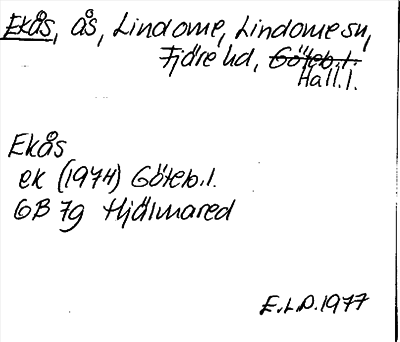 Ekås, ås, Lindome, Lindome sn,
Fjäre hd, Göteb. l.
Hall. l.
Ekås
ek (1974) Göteb. l.
GB 7g Hjälmared
E.L.D. 1977